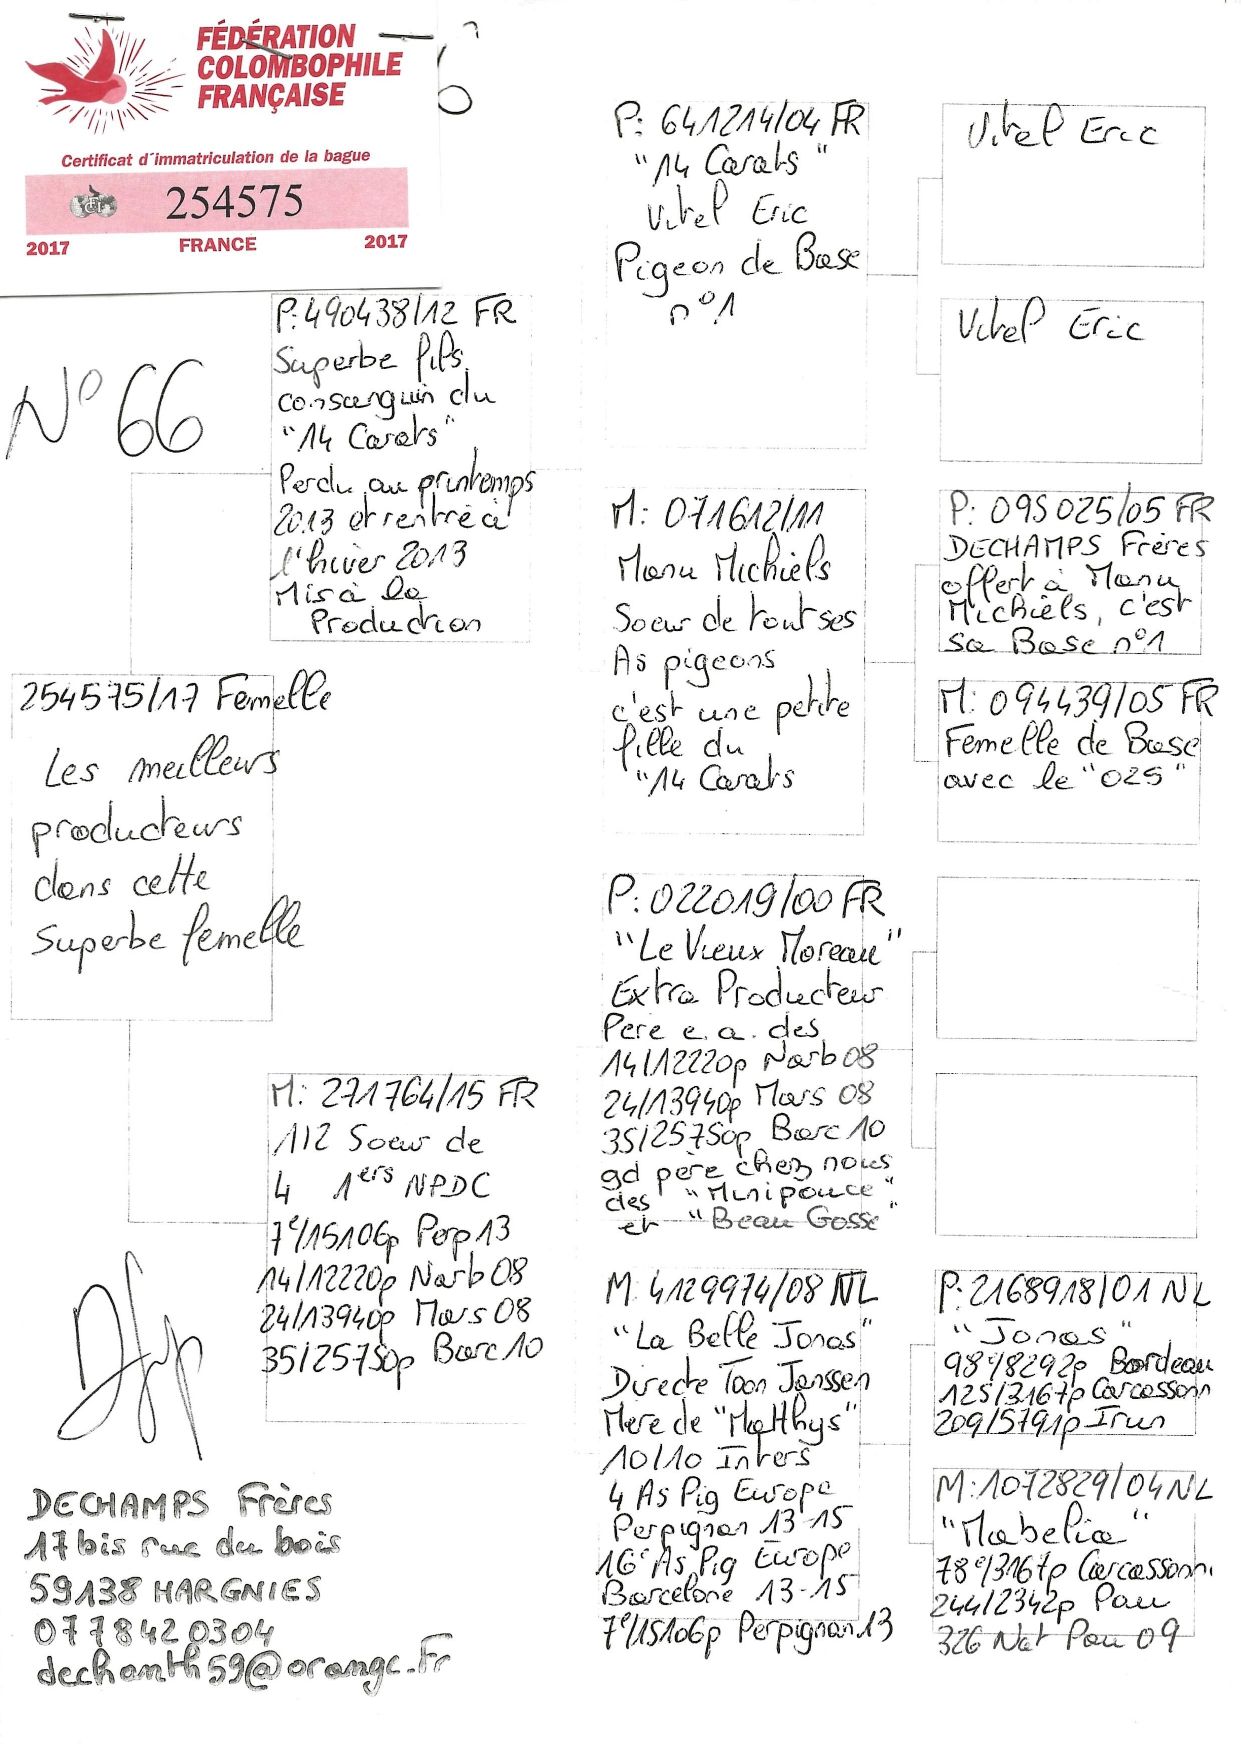 FÉDÉRATION
COLOMBOPHILE
FRANÇAISE
Certificat d´immatriculation de la bague
254575
2017 FRANCE 2017
N° 66
254575/17 Femelle
Les meilleurs
producteurs
dans cette
Superbe femelle
P: 490438/12 FR
Superbe fils
consanguin du
"14 Carats"
Perdu au printemps
2013 et rentré à
l'hiver 2013
Mis à la
Production
M: 271764/15 FR
1/2 Soeur de
4 1ers NPDC
7e/15106p Perp 13
14/12220p Narb 08
24/13940p Mars 08
35/25750p Barc 10
P: 641214/04 FR
"14 Carats"
Vitel Eric
Pigeon de Base
n°1
M: 071612/11
Manu Michiels
Soeur de tout ses
As pigeons
c'est une petite
fille du
"14 Carats
P: 022019/00 FR
"Le Vieux Moreau"
Extra Producteur
Père e.a. des
14/12220p Narb 08
24/13940p Mars 08
35/25750p Barc 10
gd père chez nous
des "Minipouce"
et "Beau Gosse"
M: 4129974/08 NL
"La Belle Jonas"
Directe Toon Janssen
Mere de "Matthys"
10/10 Inters
4 As Pig Europe
Perpignan 13-15
16e As Pig Europe
Barcelone 13-15
7e/15106p Perpignan 13
Vitel Eric
Vitel Eric
P: 095025/05 FR
DECHAMPS Frères
offert à Manu
Michiels, c'est
sa Base n°1
M: 094439/05 FR
Femelle de Base
avec le "025"
P: 2168918/01 NL
"Jonas"
98e/8292p Bordeau
125/3167p Carcassonn
209/5791p Irun
M: 1072829/04 NL
"Mabelia"
78e/3167p Carcassonn
244/2342p Pau
326 Nat Pau 09
DECHAMPS Frères
17 bis rue du bois
59138 HARGNIES
0778420304
dechanth59@orange.Fr